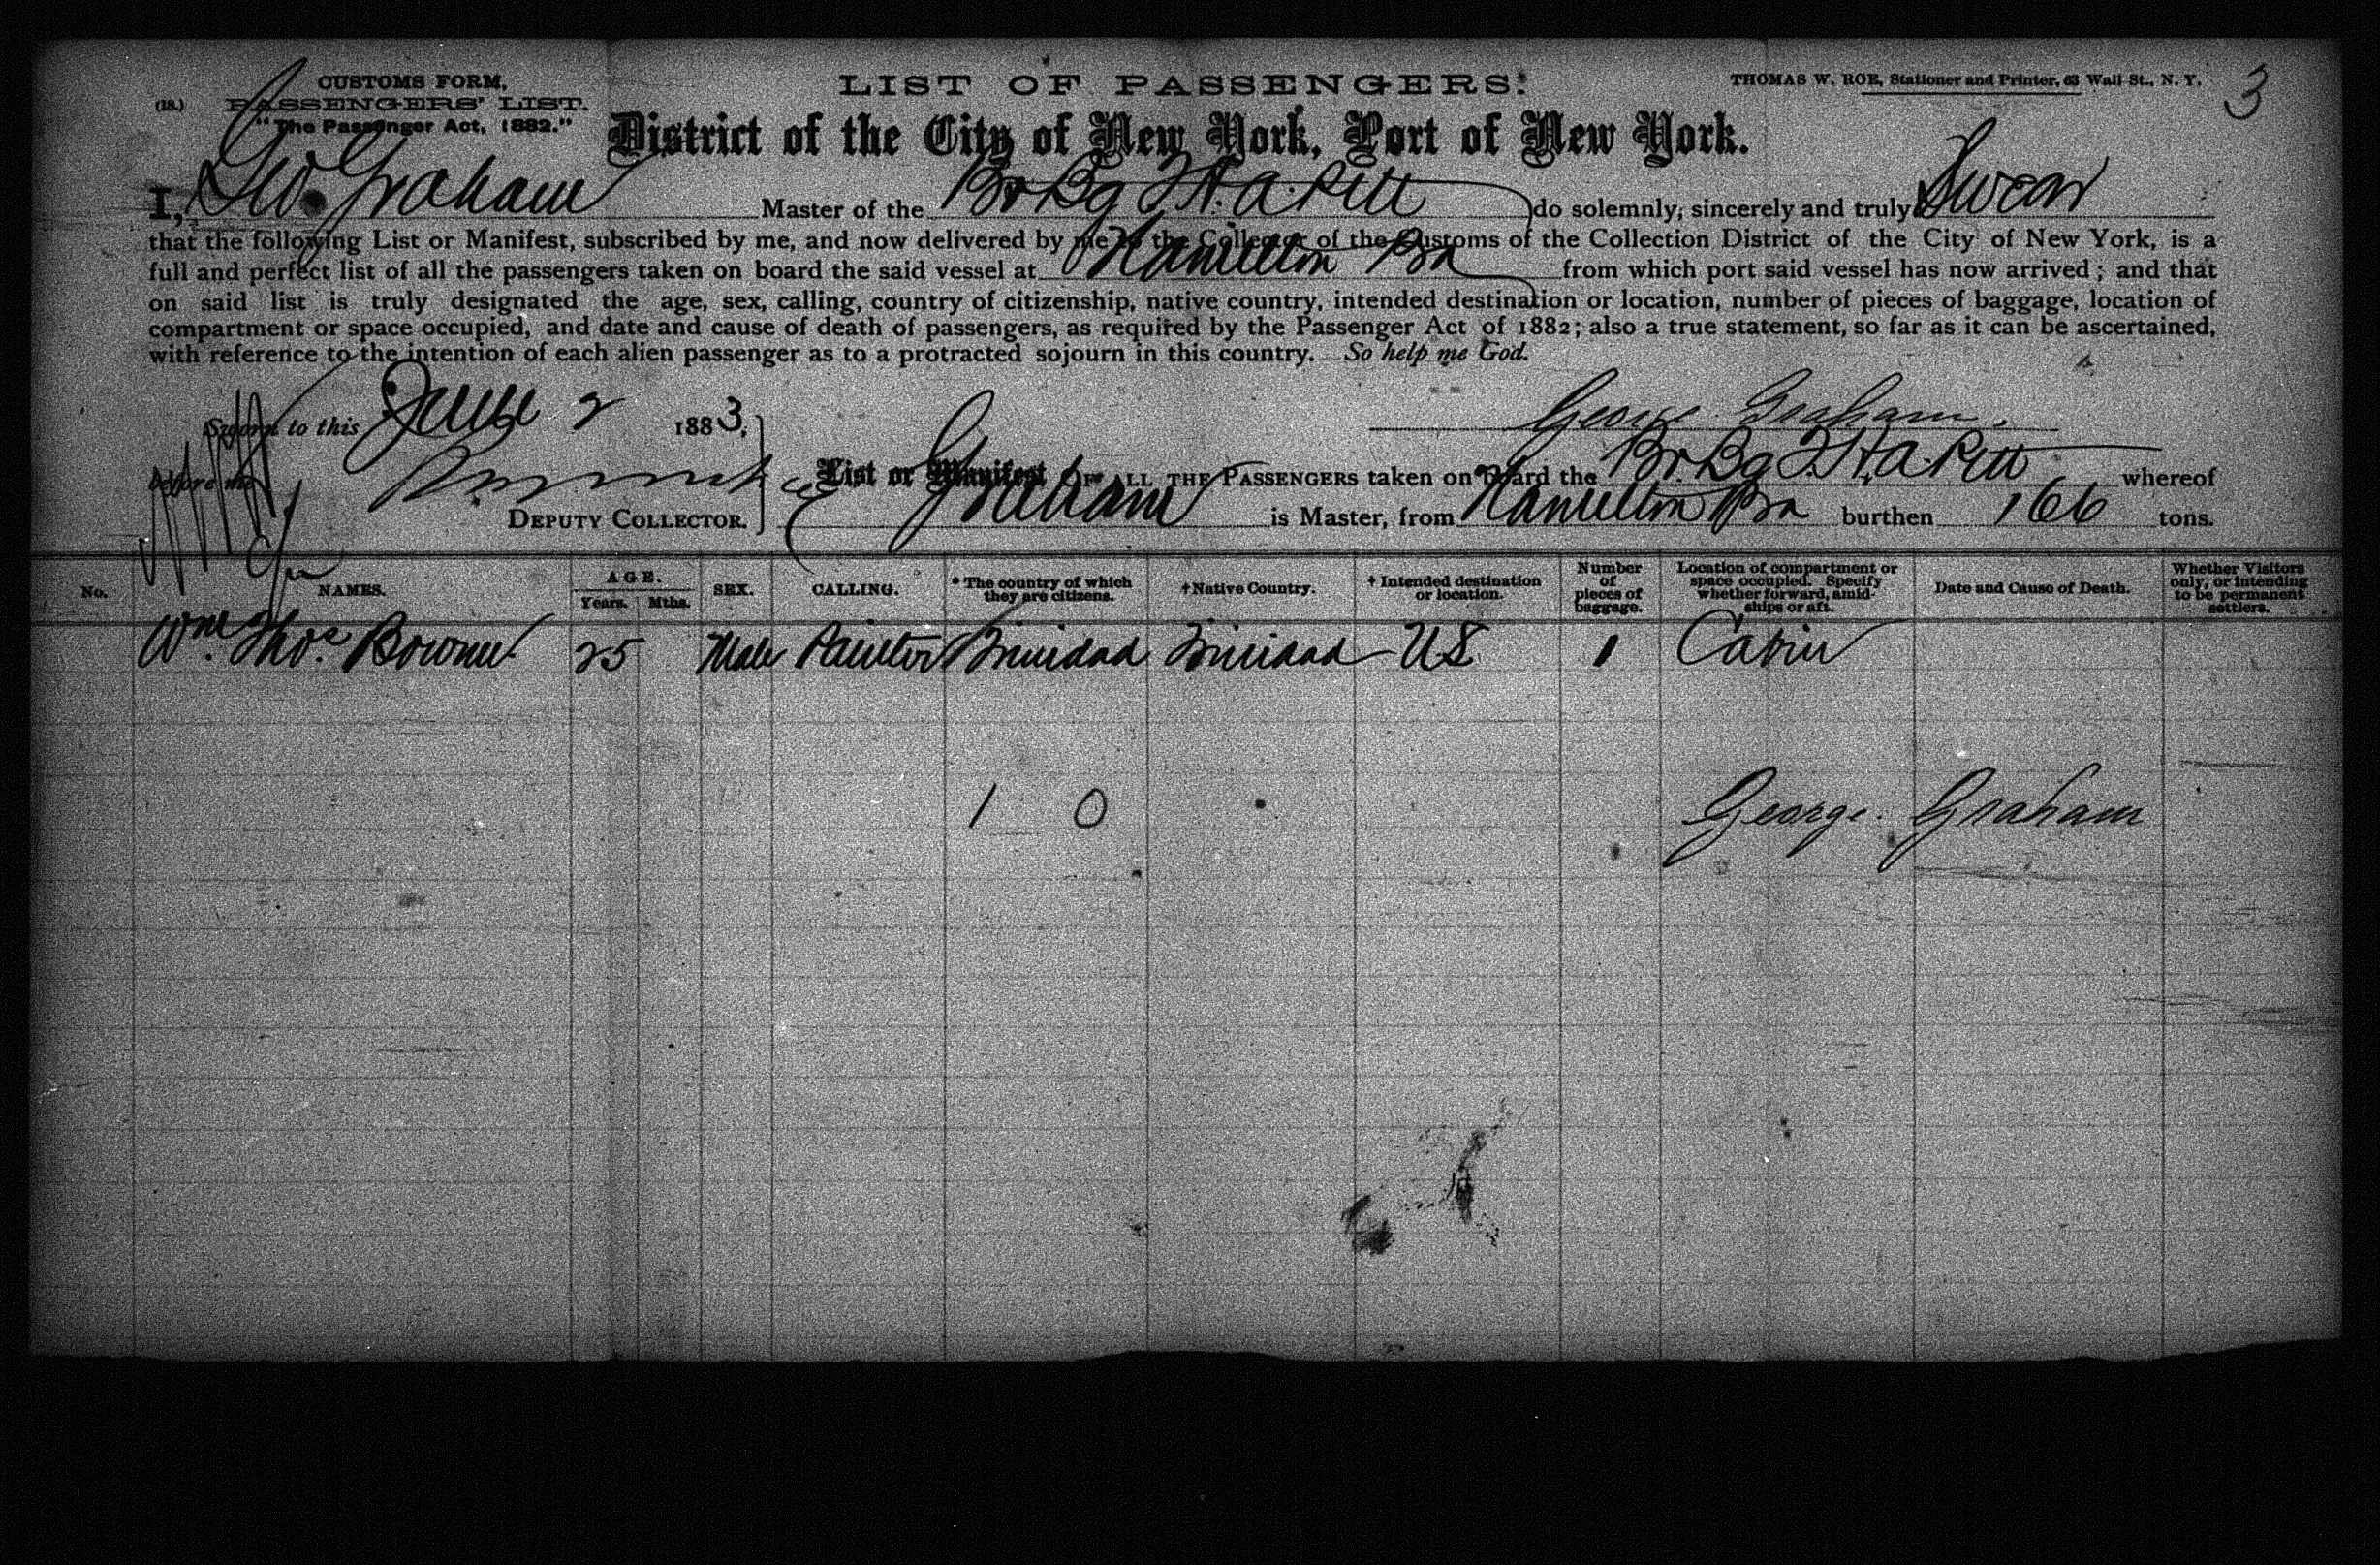 (18.)
CUSTOMS FORM,
PASSENGERS' LIST.
"The Passenger Act, 1882."
LIST OF PASSENGERS.
THOMAS W. ROE, Stationer and Printer, 63 Wall St., N. Y.
3
District of the City of New York, Port of New York.
I, Geo Graham Master of the Br Bg T. H. A. Pitt do solemnly, sincerely and truly Swear
that the following List or Manifest, subscribed by me, and now delivered by me to the Collector of the Customs of the Collection District of the City of New York, is a
full and perfect list of all the passengers taken on board the said vessel at Hamilton Bda from which port said vessel has now arrived; and that
on said list is truly designated the age, sex, calling, country of citizenship, native country, intended destination or location, number of pieces of baggage, location of
compartment or space occupied, and date and cause of death of passengers, as required by the Passenger Act of 1882; also a true statement, so far as it can be ascertained,
with reference to the intention of each alien passenger as to a protracted sojourn in this country. So help me God.
Sworn to this June 2 1883,
George Graham
before me
DEPUTY COLLECTOR.
List or Manifest OF ALL THE PASSENGERS taken on board the Br. Bg T. H. A. Pitt whereof
Graham is Master, from Hamilton Bda burthen 166 tons.
No. NAMES. AGE. Years. Mths. SEX. CALLING. * The country of which they are citizens. † Native Country. † Intended destination or location. Number of pieces of baggage. Location of compartment or space occupied. Specify whether forward, amidships or aft. Date and Cause of Death. Whether Visitors only, or intending to be permanent settlers.
Wm. Thos. 25 Male Painter Trinidad Trinidad US 1 Cabin
1 0
George Graham